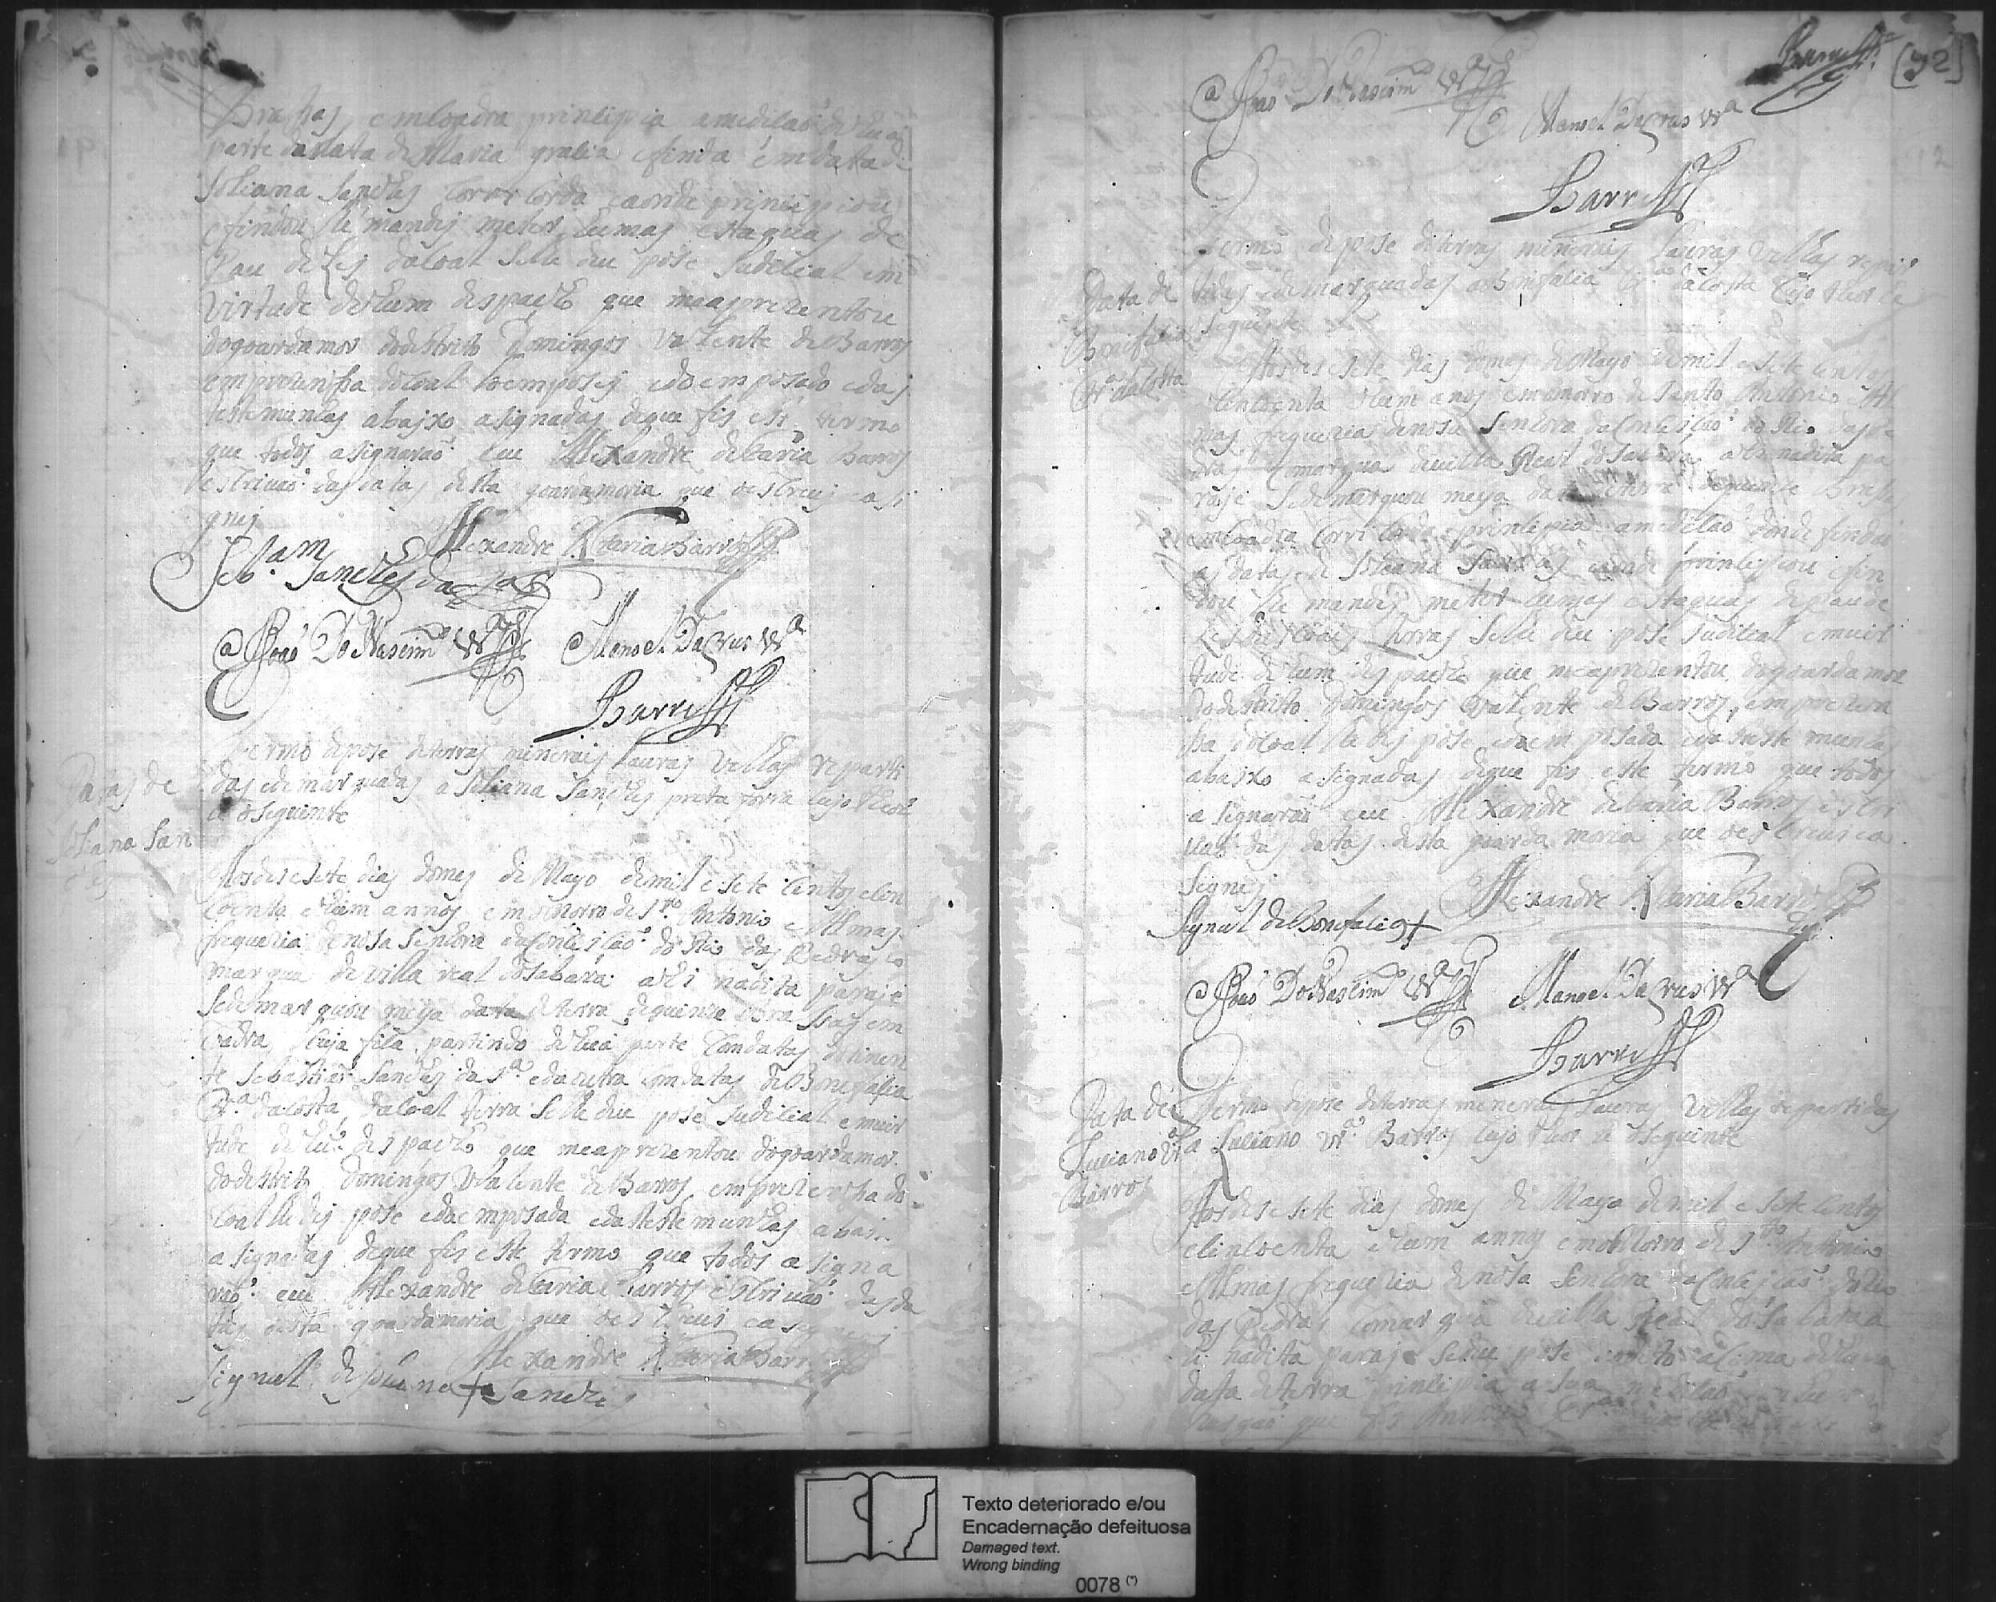 Brassas emcoadra principia amedicaõ de hua
parte da data de Maria gracia efinda emdata de
Joliana Sanches Corer Corda eaonde principiou
efindou lhe mandej meter humas estaquas de
Pau de Lej daCoal selhe deu pose Judicial em
virtude dehum despacho que meaprezentou
dogoardamor dodestrito Domingos Valente deBarros
emprezensa docoal oemposej edoemposado edas
testemunhas abajxo asignadas deque fis este termo
que todos asignaraõ eue Alexandre defaria Barros
escrivaõ das datas desta goardamoria que oescreuj easi
gnej
Alexandre Faria Barros
Seb.am Sanches da
Joaõ Do Nascim.to
Manoel Da
Barros
Termo depose deterras minerais Lauras Velhas reparti
das edemarquadas a Joliana Sanches preta forra Cujo theor
he oseguinte
Datas de
Joliana San
ches
Aosdesesete dias domes de Mayo demil e sete Centos eCin
Coenta ehum annos emoMorro de S.to Antonio e Almas
freguezia denosa senhora daConceiçaõ do Rio das Pedras Co
marqua de villa real doSabará ahi nadita paraje
sedemarquou meya data deterra dequinze brassas em
Coadra Cuja fica partindo dehua parte Comdatas dotenen
te Sebastiaõ Sanches da S.a edaoutra Comdatas deBonifacia
dacosta daCoal terra selhe deu pose Judicial emvir
tude dehu despacho que meaprezentou dogoardamor
dodestrito Domingos Valente deBarros emprezensa do
Coal lhe dej pose edaemposada edastestemunhas abai
asignadas deque fis este termo que todos asigna
raõ eue Alexandre defaria Barros escrivaõ dasda
tas desta goardamoria que oescreui easignej
Alexandre Faria Barros
Signal de Juliana + Sanches
Barros (92)
Joaõ Do Nascim.to
Manoel Da
Barros
Termo depose deterras minerais Lauras Velhas repar
tidas edemarquadas aBonifacia daCosta Cujo theor he
oseguinte
Data de
Bonifacia
daCosta
Aosdesesete dias domes deMayo demil esete centos
eCincoenta ehum anos emomorro deSanto Antonio e Al
mas freguezia denosa Senhora daConceiçaõ do Rio das Pe
dras Comarqua devilla Real doSabará ahi nadita pa
raje sedemarquou meya data deterra dequinze Brassas
emCoadra Corer Corda eprincipia amedicaõ donde findaõ
as datas de Joliana Sanches eaonde principiou efin
dou lhe mandej meter humas estaquas depau de
Lej terras selhe deu pose Judicial emvir
tude dehum despacho que meaprezentou dogoardamor
dodestrito Domingos Valente deBarros emprezen
sa doCoal lhe dej pose edaemposada edastestemunhas
abaixo asignadas deque fis este termo que todos
asignaraõ eue Alexandre defaria Barros escri
uaõ das datas desta goarda moria que oescreui ea
signej
Alexandre Faria Barros
Signal deBonifacia +
Joaõ Do Nascim.to
Manoel Da
Barros
Data de
Juliano
Barros
Termo depose deterras minerais Lauras Velhas repartidas
a Juliano Barros Cujo theor he oseguinte
Aosdesesete dias domes de Mayo demil e sete Centos
eCincoenta ehum annos emoMorro de S.to Antonio
eAlmas freguezia denosa Senhora daConceiçaõ doRio
das Pedras Comarqua devilla Real doSabará
nadita paraje sedeu pose aodito aCima dehua
data deterra principia a sua medicaõ
que fes Antonio
Texto deteriorado e/ou
Encadernação defeituosa
Damaged text.
Wrong binding
0078 (*)